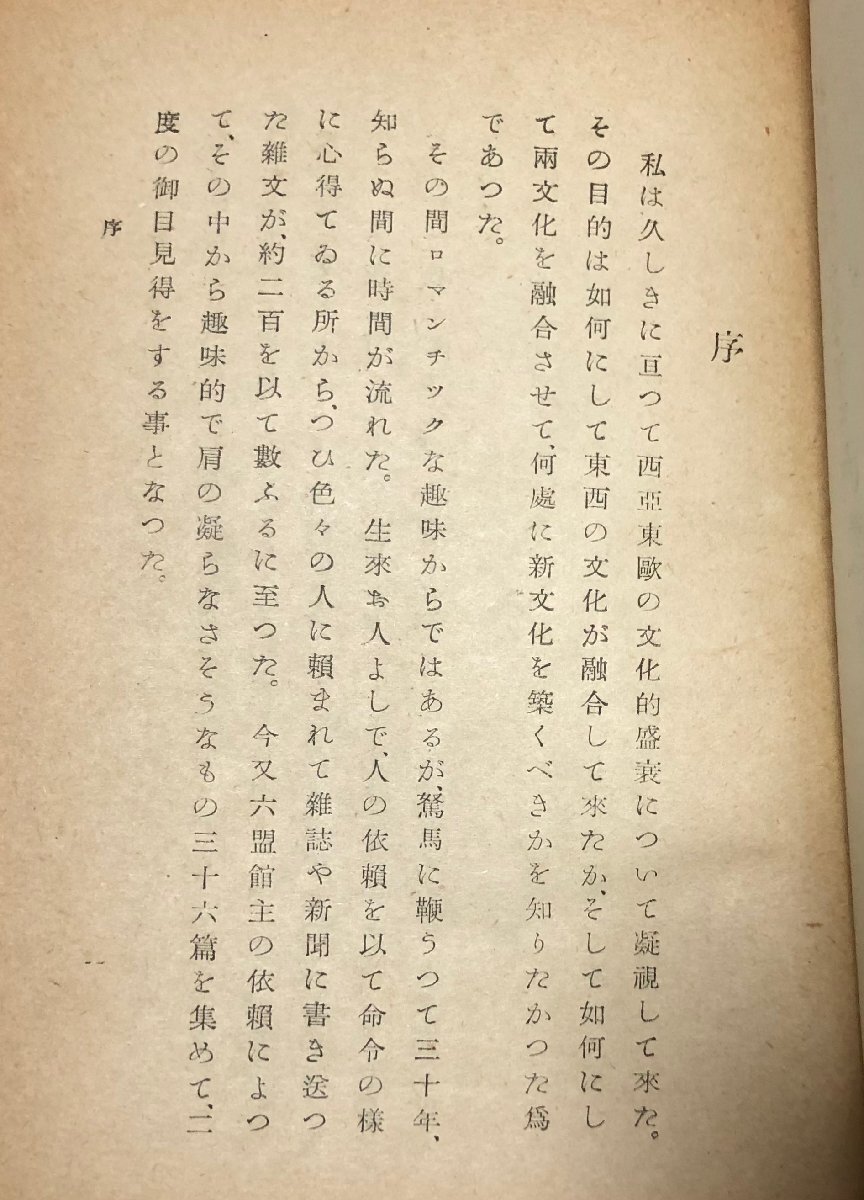 序
私は久しきに亘つて西亞東歐の文化的盛衰について凝視して來た。
その目的は如何にして東西の文化が融合して來たか、そして如何にし
て兩文化を融合させて、何處に新文化を築くべきかを知りたかつた爲
であつた。
その間ロマンチックな趣味からではあるが、駑馬に鞭うつて三十年、
知らぬ間に時間が流れた。生來お人よしで、人の依賴を以て命令の樣
に心得てゐる所から、つひ色々の人に賴まれて雜誌や新聞に書き送つ
た雜文が、約二百を以て數ふるに至つた。今又六盟館主の依賴によつ
て、その中から趣味的で肩の凝らなさそうなもの三十六篇を集めて、二
度の御目見得をする事となつた。
序
一